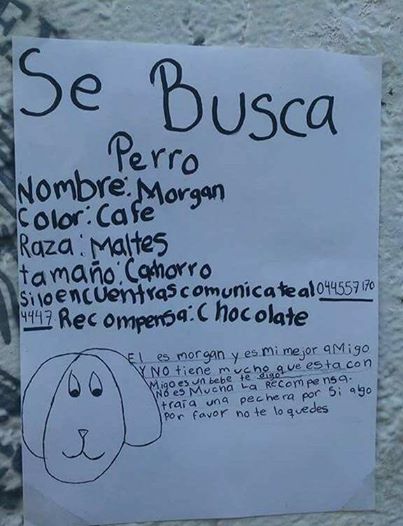 Se Busca
Perro
Nombre: Morgan
Color: Cafe
Raza: Maltes
tamaño: Cahorro
si lo encuentras comunicate al 044557170
4447 Recompensa: Chocolate
El es morgan y es mi mejor aMigo
Y NO tiene mucho que esta con
Migo es un bebe te digo
No es Mucha La Recompensa.
traia una pechera por si algo
Por favor no te lo quedes